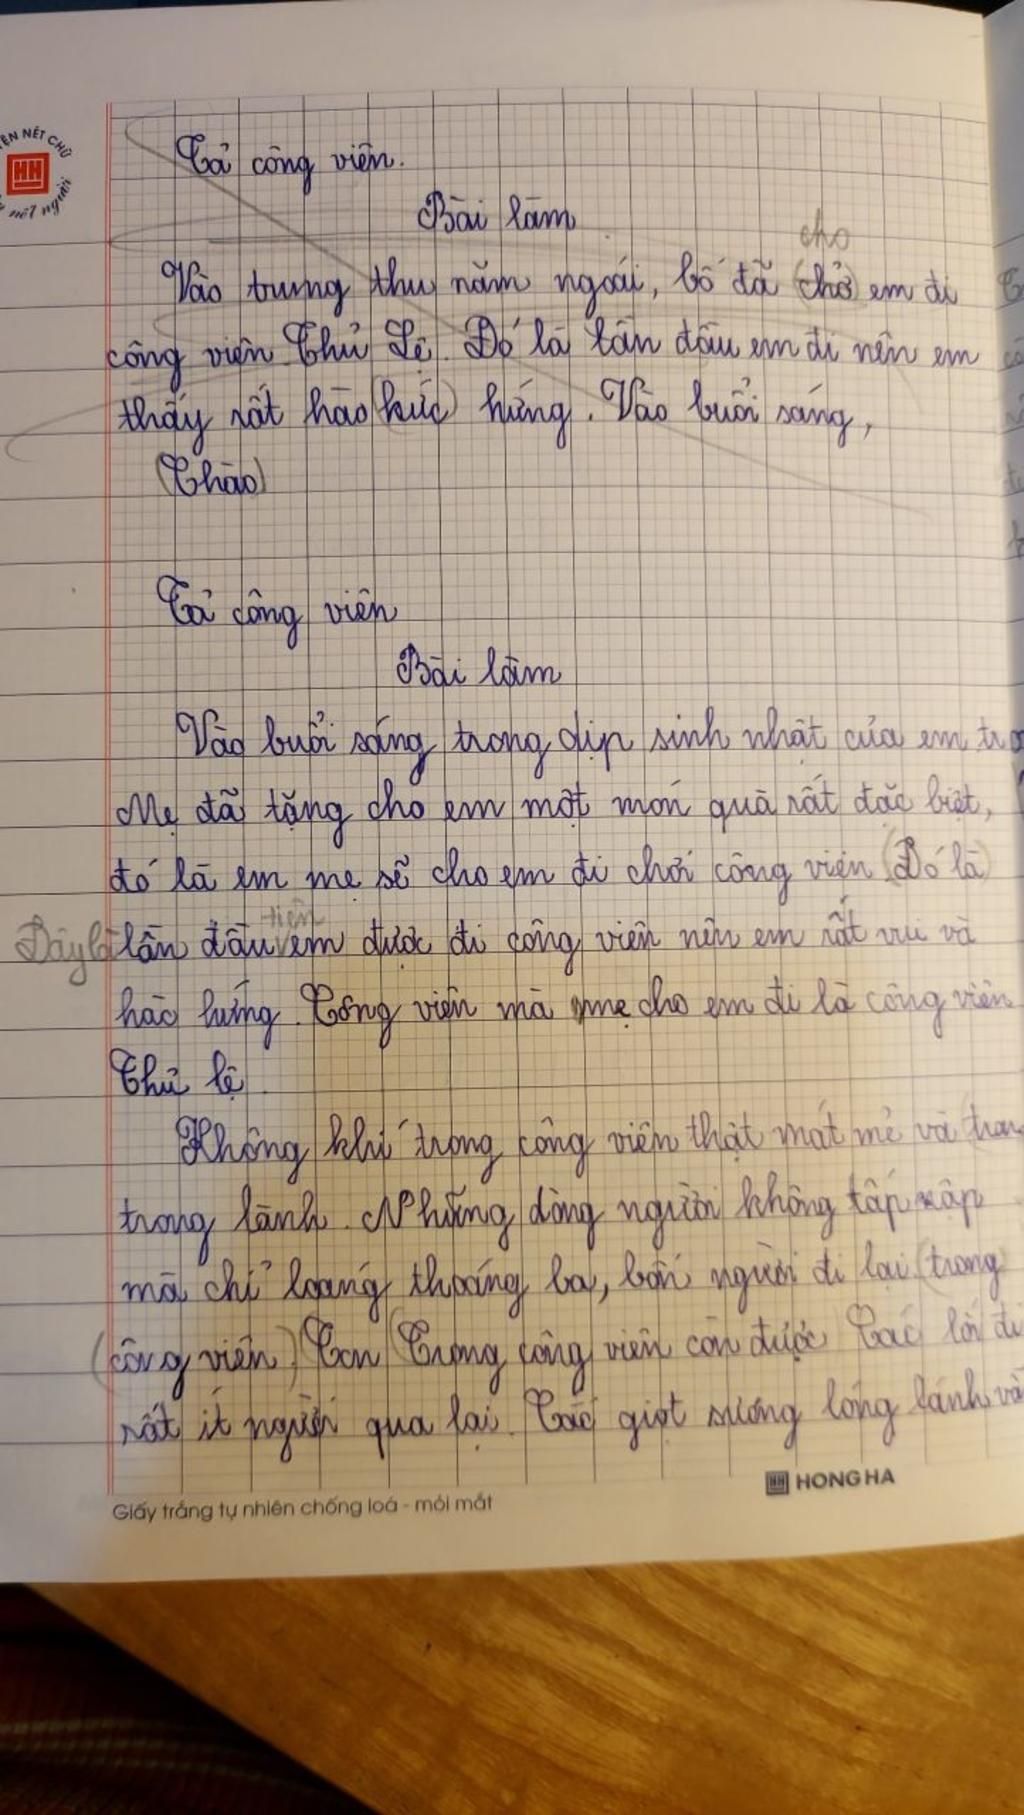 ỆN NÉT CHỮ
HH
nết người
Tả công viên.
Bài làm
cho
Vào trung thu năm ngoái, bố đã (chở) em đi
công viên Thủ Lệ. Đó là lần đầu em đi nên em
thấy rất hào (hức) hứng. Vào buổi sáng,
(Chào)
Tả công viên
Bài làm
Vào buổi sáng trong dịp sinh nhật của em
Mẹ đã tặng cho em một món quà rất đặc biệt,
đó là em mẹ sẽ cho em đi chơi công viên (Đó là)
tiên
Đây là lần đầu em được đi công viên nên em rất vui và
hào hứng. Công viên mà mẹ cho em đi là công viên
Thủ lệ.
Không khí trong công viên thật mát mẻ và
trong lành. Những dòng người không tấp nập
mà chỉ loáng thoáng ba, bốn người đi lại (trong
công viên) Con Trong công viên còn được Các lối đi
rất ít người qua lại. Các giọt sương lóng lánh
HH HONG HA
Giấy trắng tự nhiên chống loá - mỏi mắt